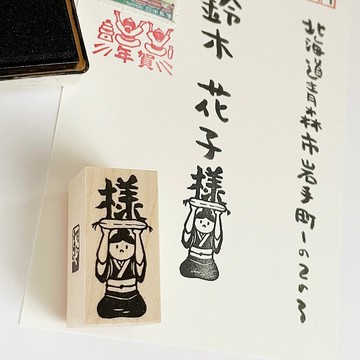 北海道青森市岩手町一の二の三
鈴木 花子
様
年賀
様